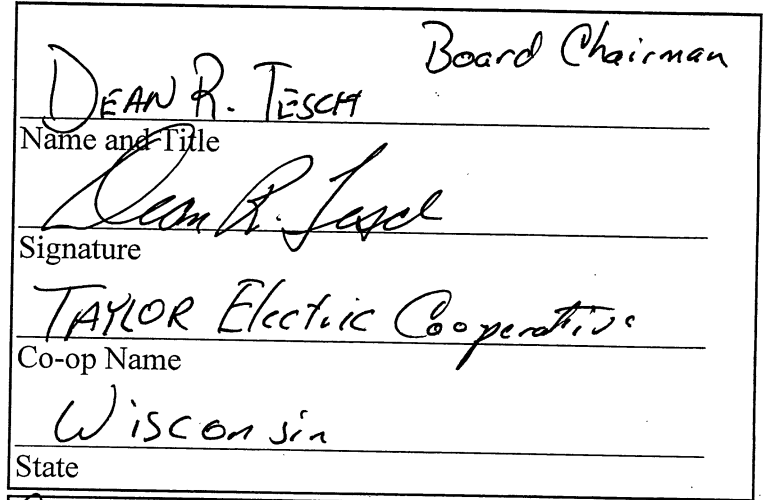 Board Chairman
DEAN R. TESCH
Name and Title
Dean R. Tesch
Signature
TAYLOR Electric Cooperative
Co-op Name
Wisconsin
State